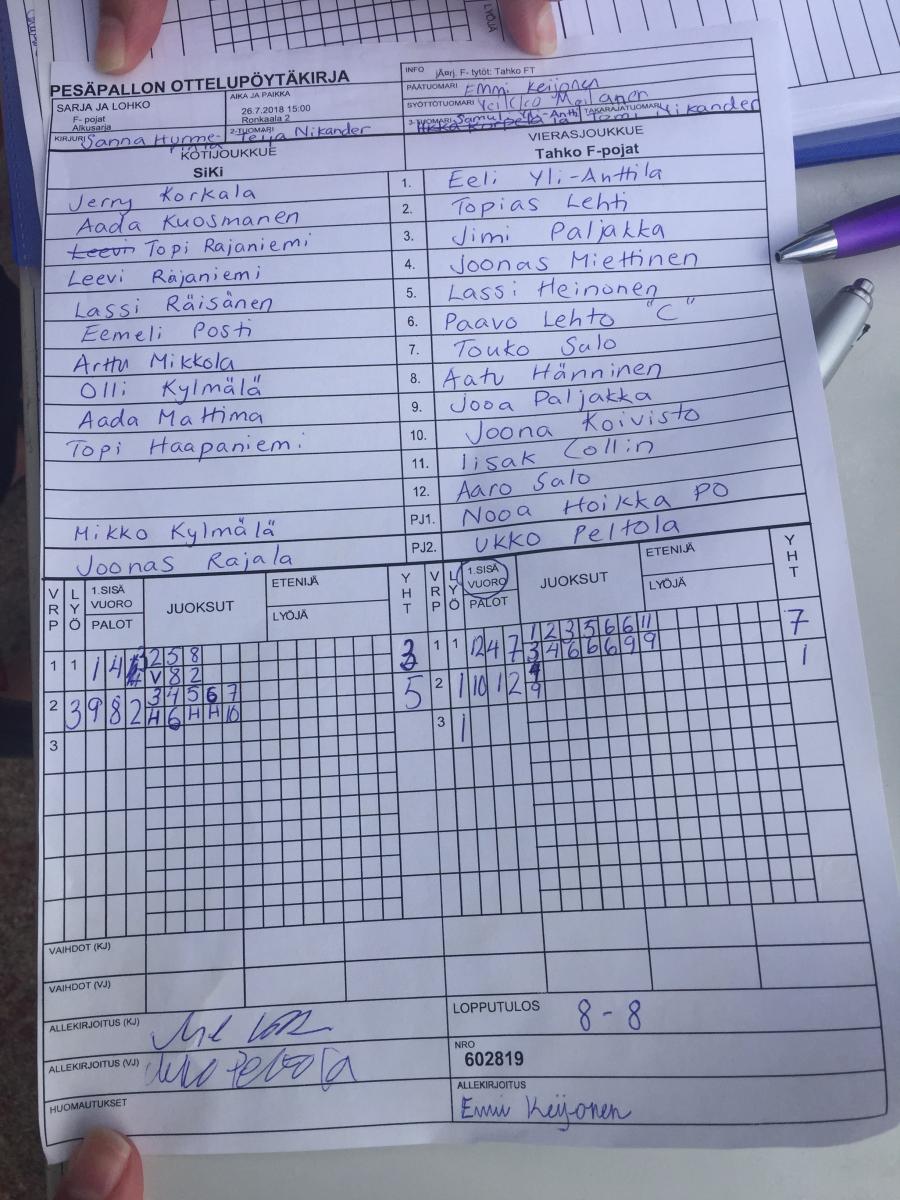 LYÖJÄ
PESÄPALLON OTTELUPÖYTÄKIRJA
INFO jÄrj. F- tytöt: Tahko FT
SARJA JA LOHKO
F- pojat
Alkusarja
AIKA JA PAIKKA
26.7.2018 15:00
Ronkaala 2
PÄÄTUOMARI Emmi Keijonen
SYÖTTÖTUOMARI
KIRJURI Sanna Hurme-
2-TUOMARI Teija Nikander
3-TUOMARI
TAKARAJATUOMARI Tomi Nikander
KOTIJOUKKUE
SiKi
VIERASJOUKKUE
Tahko F-pojat
Jerry Korkala 1. Eeli Yli-Anttila
Aada Kuosmanen 2. Topias Lehti
Leevi Topi Rajaniemi 3. Jimi Paljakka
Leevi Rajaniemi 4. Joonas Miettinen
Lassi Räisänen 5. Lassi Heinonen
Eemeli Posti 6. Paavo Lehto "C"
Arttu Mikkola 7. Touko Salo
Olli Kylmälä 8. Aatu Hänninen
Aada Mattima 9. Jooa Paljakka
Topi Haapaniemi 10. Joona Koivisto
11. Iisak Collin
12. Aaro Salo
Mikko Kylmälä PJ1. Nooa Hoikka PO
Joonas Rajala PJ2. Ukko Peltola
VRP LYÖ 1.SISÄ VUORO PALOT JUOKSUT ETENIJÄ LYÖJÄ YHT
VRP LYÖ 1.SISÄ VUORO PALOT JUOKSUT ETENIJÄ LYÖJÄ YHT
1 1 1 4 2 5 8 3
V 8 2
1 1 12 4 7 1 2 3 5 6 6 11 7
3 4 6 6 6 9 9
2 3 9 8 2 3 4 5 6 7 5
H 6 H H 10
2 1 10 1 2 4 1
9
3
3 1
VAIHDOT (KJ)
VAIHDOT (VJ)
ALLEKIRJOITUS (KJ)
LOPPUTULOS 8 - 8
ALLEKIRJOITUS (VJ) Ukko Peltola
NRO
602819
HUOMAUTUKSET
ALLEKIRJOITUS
Emmi Keijonen